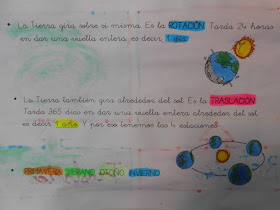 • La Tierra gira sobre sí misma. Es la ROTACIÓN Tarda 24 horas
en dar una vuelta entera, es decir, 1 día
• La Tierra también gira alrededor del sol. Es la TRASLACIÓN
Tarda 365 días en dar una vuelta entera alrededor del sol,
es decir 1 año. Y por eso tenemos las 4 estaciones:
• PRIMAVERA VERANO OTOÑO INVIERNO